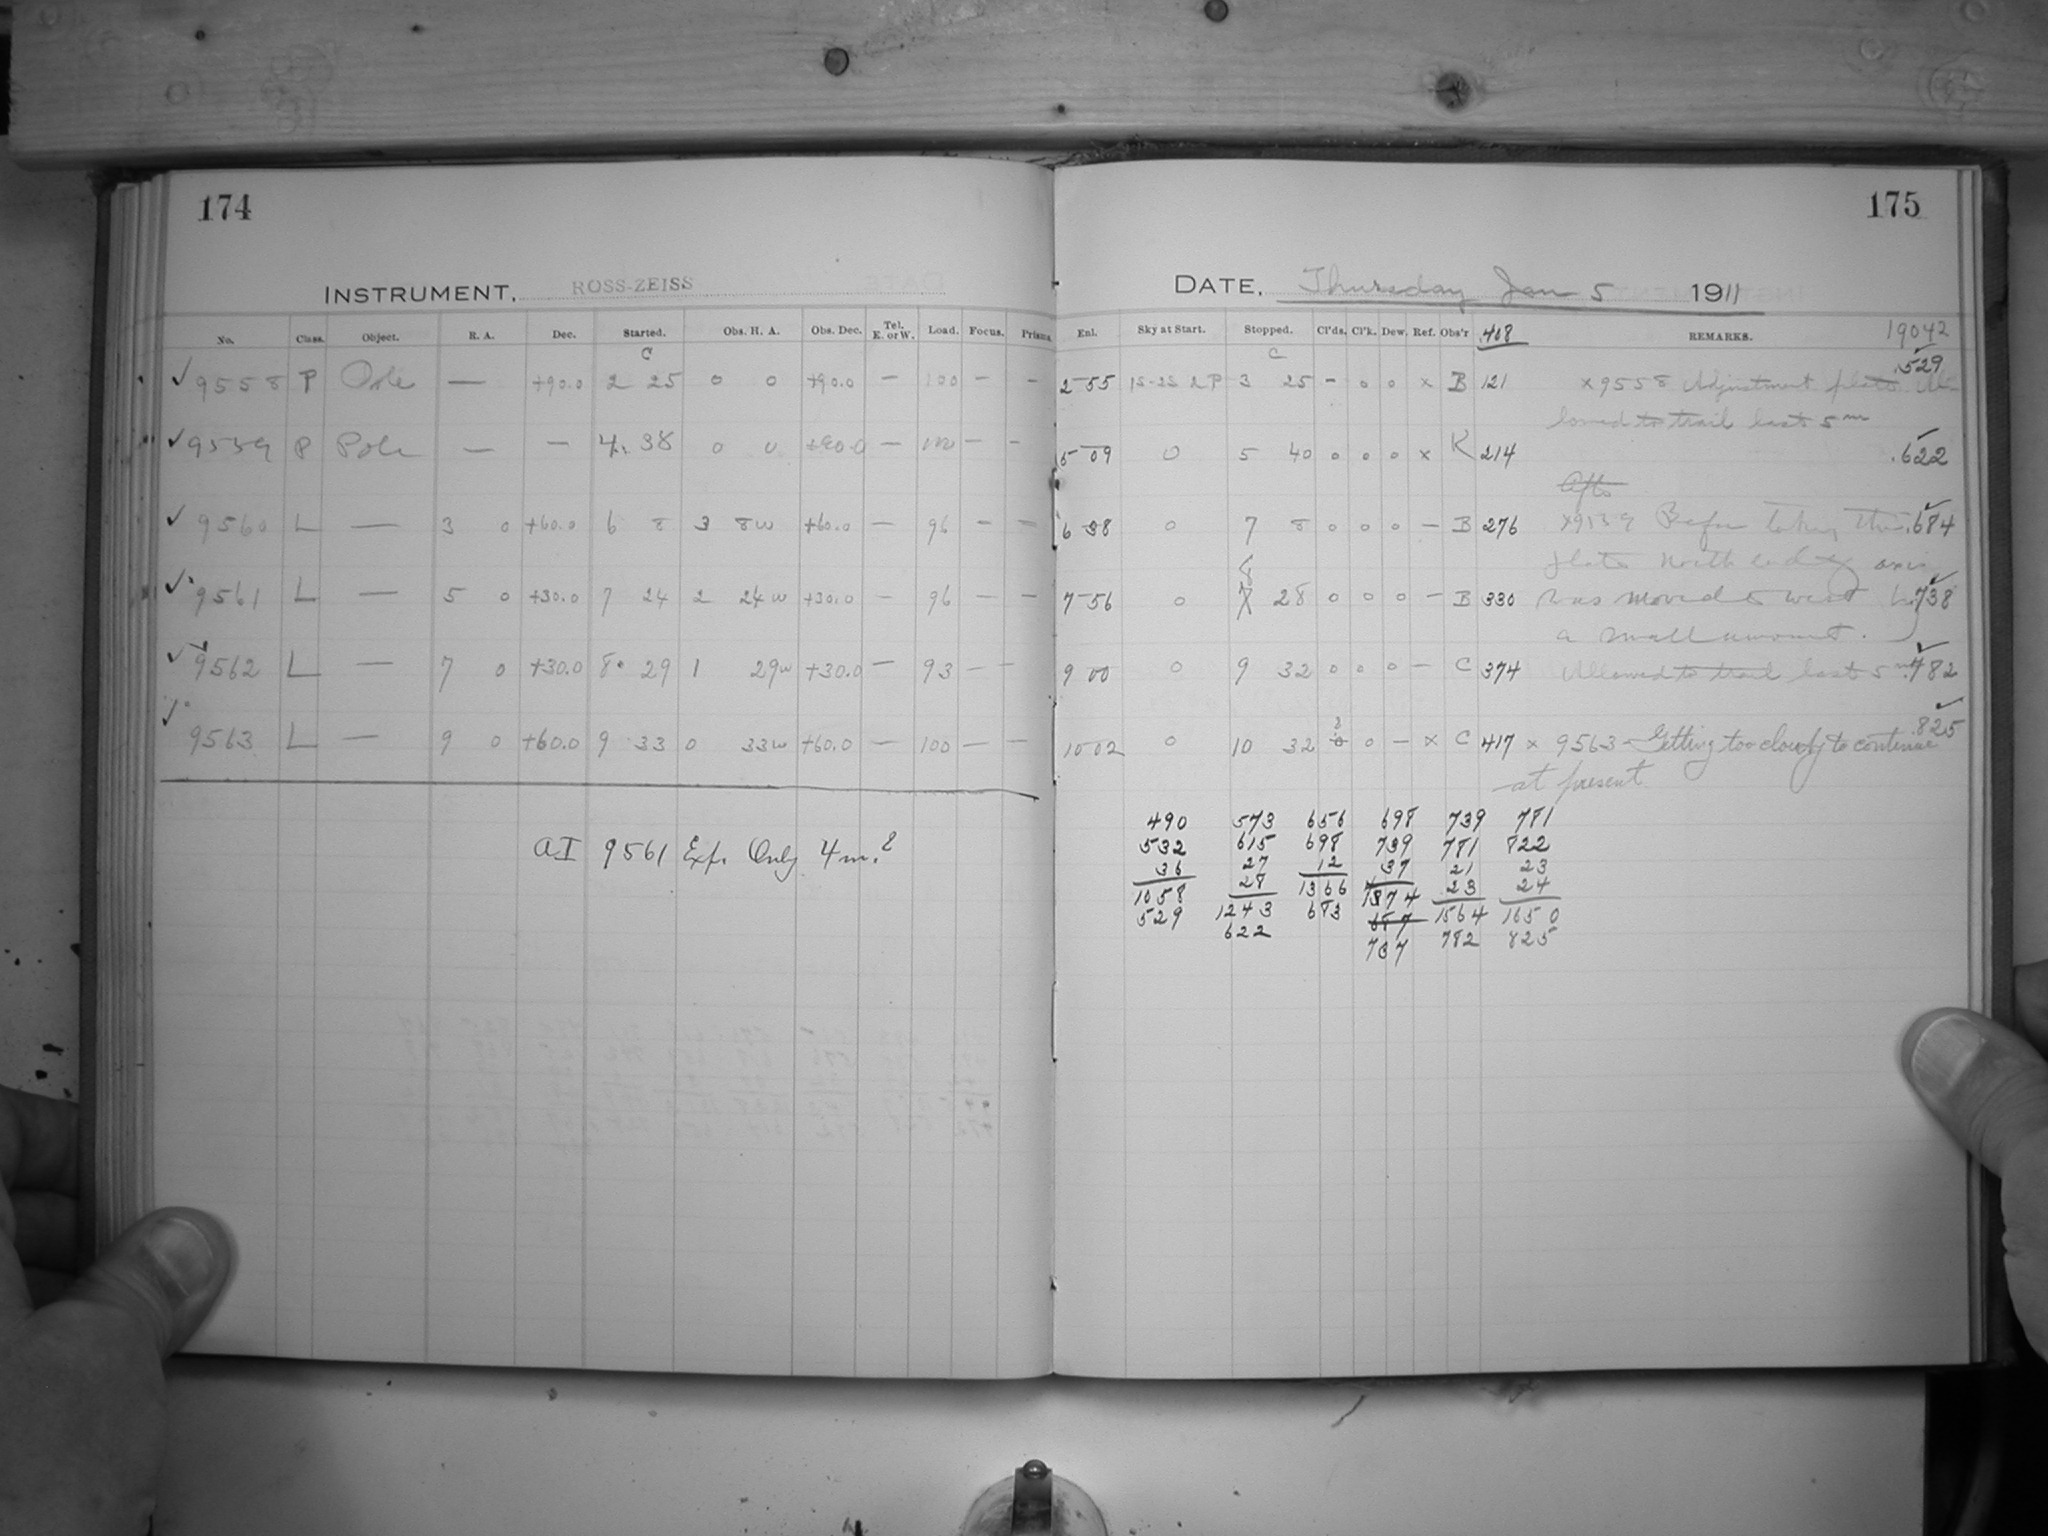 174
INSTRUMENT, ROSS-ZEISS
No. Class. Object. R. A. Dec. Started. Obs. H. A. Obs. Dec. Tel. E. or W. Load. Focus. Prisms
C
✓ 9558 P Pole — +90.0 2 25 0 0 +90.0 — 100 — —
✓ 9559 P Pole — — 4. 38 0 0 +90.0 — 100 — —
✓ 9560 L — 3 0 +60.0 6 8 3 8w +60.0 — 96 — —
✓ 9561 L — 5 0 +30.0 7 24 2 24w +30.0 — 96 — —
✓ 9562 L — 7 0 +30.0 8 29 1 29w +30.0 — 93 — —
✓ 9563 L — 9 0 +60.0 9 33 0 33w +60.0 — 100 — —
AI 9561 Exp. Only 4m.?
175
DATE, Thursday Jan 5 1911
Enl. Sky at Start. Stopped. Cl'ds. Cl'k. Dew. Ref. Obs'r .408 REMARKS. 19042
C
2 55 15-25 2P 3 25 - 0 0 x B 121 x 9558 Adjustment plate. Al- .529
lowed to trail last 5m
5 09 0 5 40 0 0 0 x K 214 .622
After
6 38 0 7 8 0 0 0 — B 276 x9559 Before taking this .684
plate North end of axis
7 56 0 8 28 0 0 0 — B 330 was moved to west by .738
a small amount.
9 00 0 9 32 0 0 0 — C 374 Allowed to trail last 5m .782
10 02 0 10 32 0 0 — x C 417 x 9563 - Getting too cloudy to continue .825
at present
490 573 656 698 739 781
532 615 698 739 781 822
36 27 12 37 21 23
1058 28 1366 1374 23 24
529 1243 683 687 1564 1650
622 737 782 825